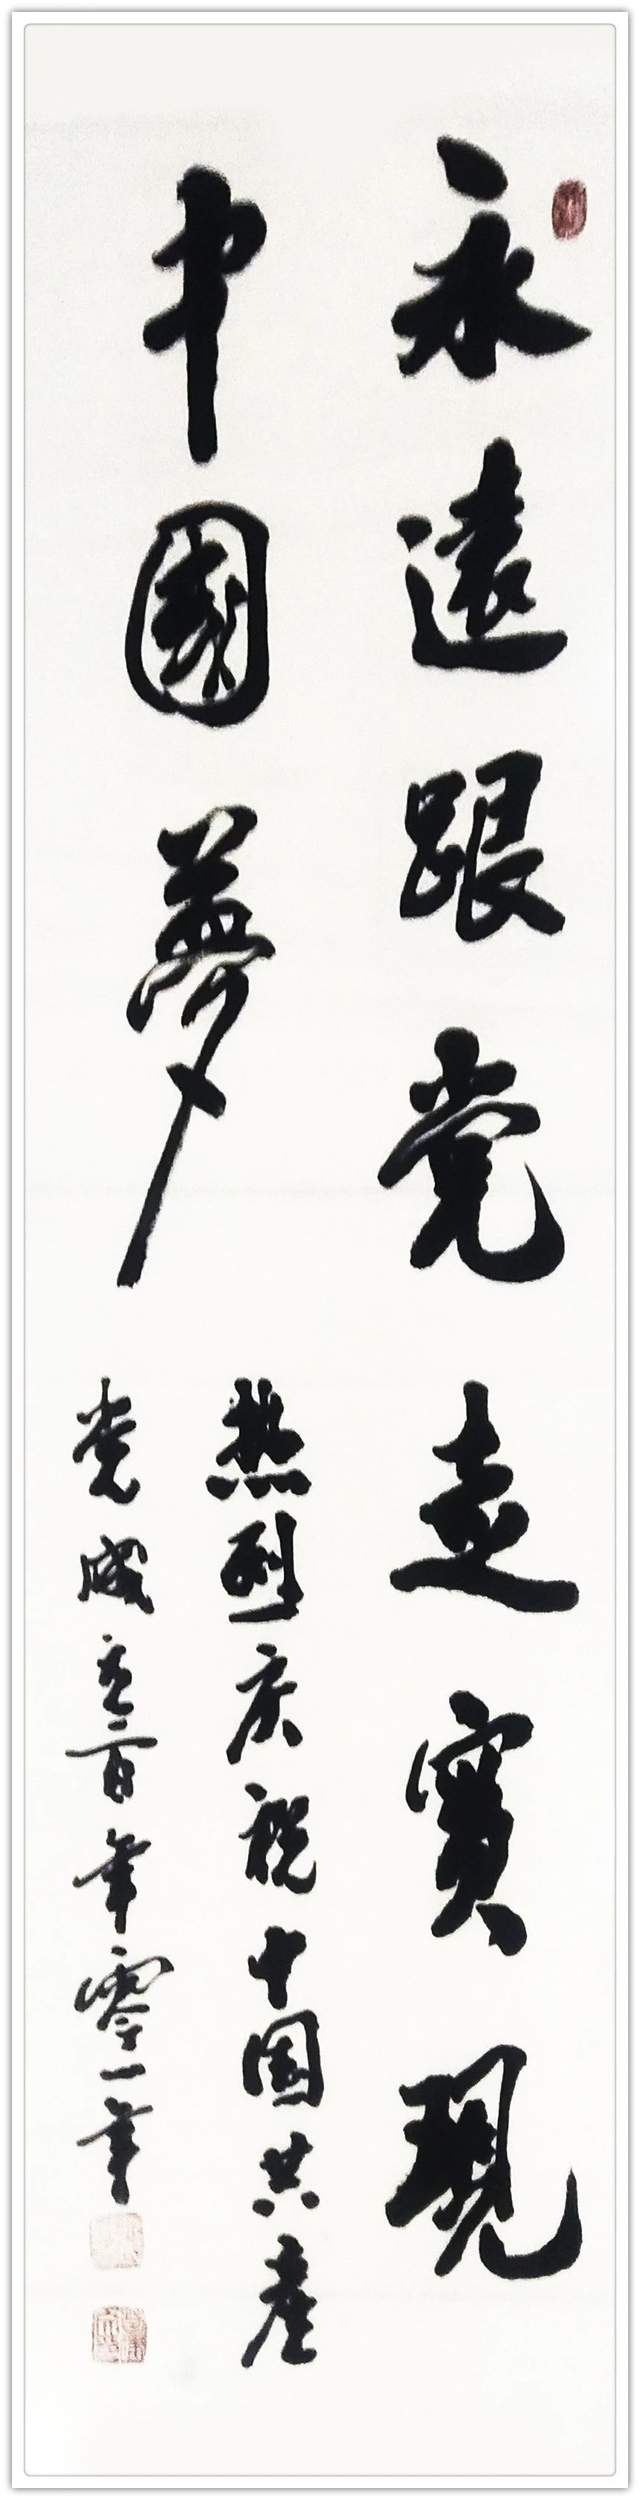 永遠跟党走實現
中國夢
热烈庆祝中国共產
党成立百年零一年